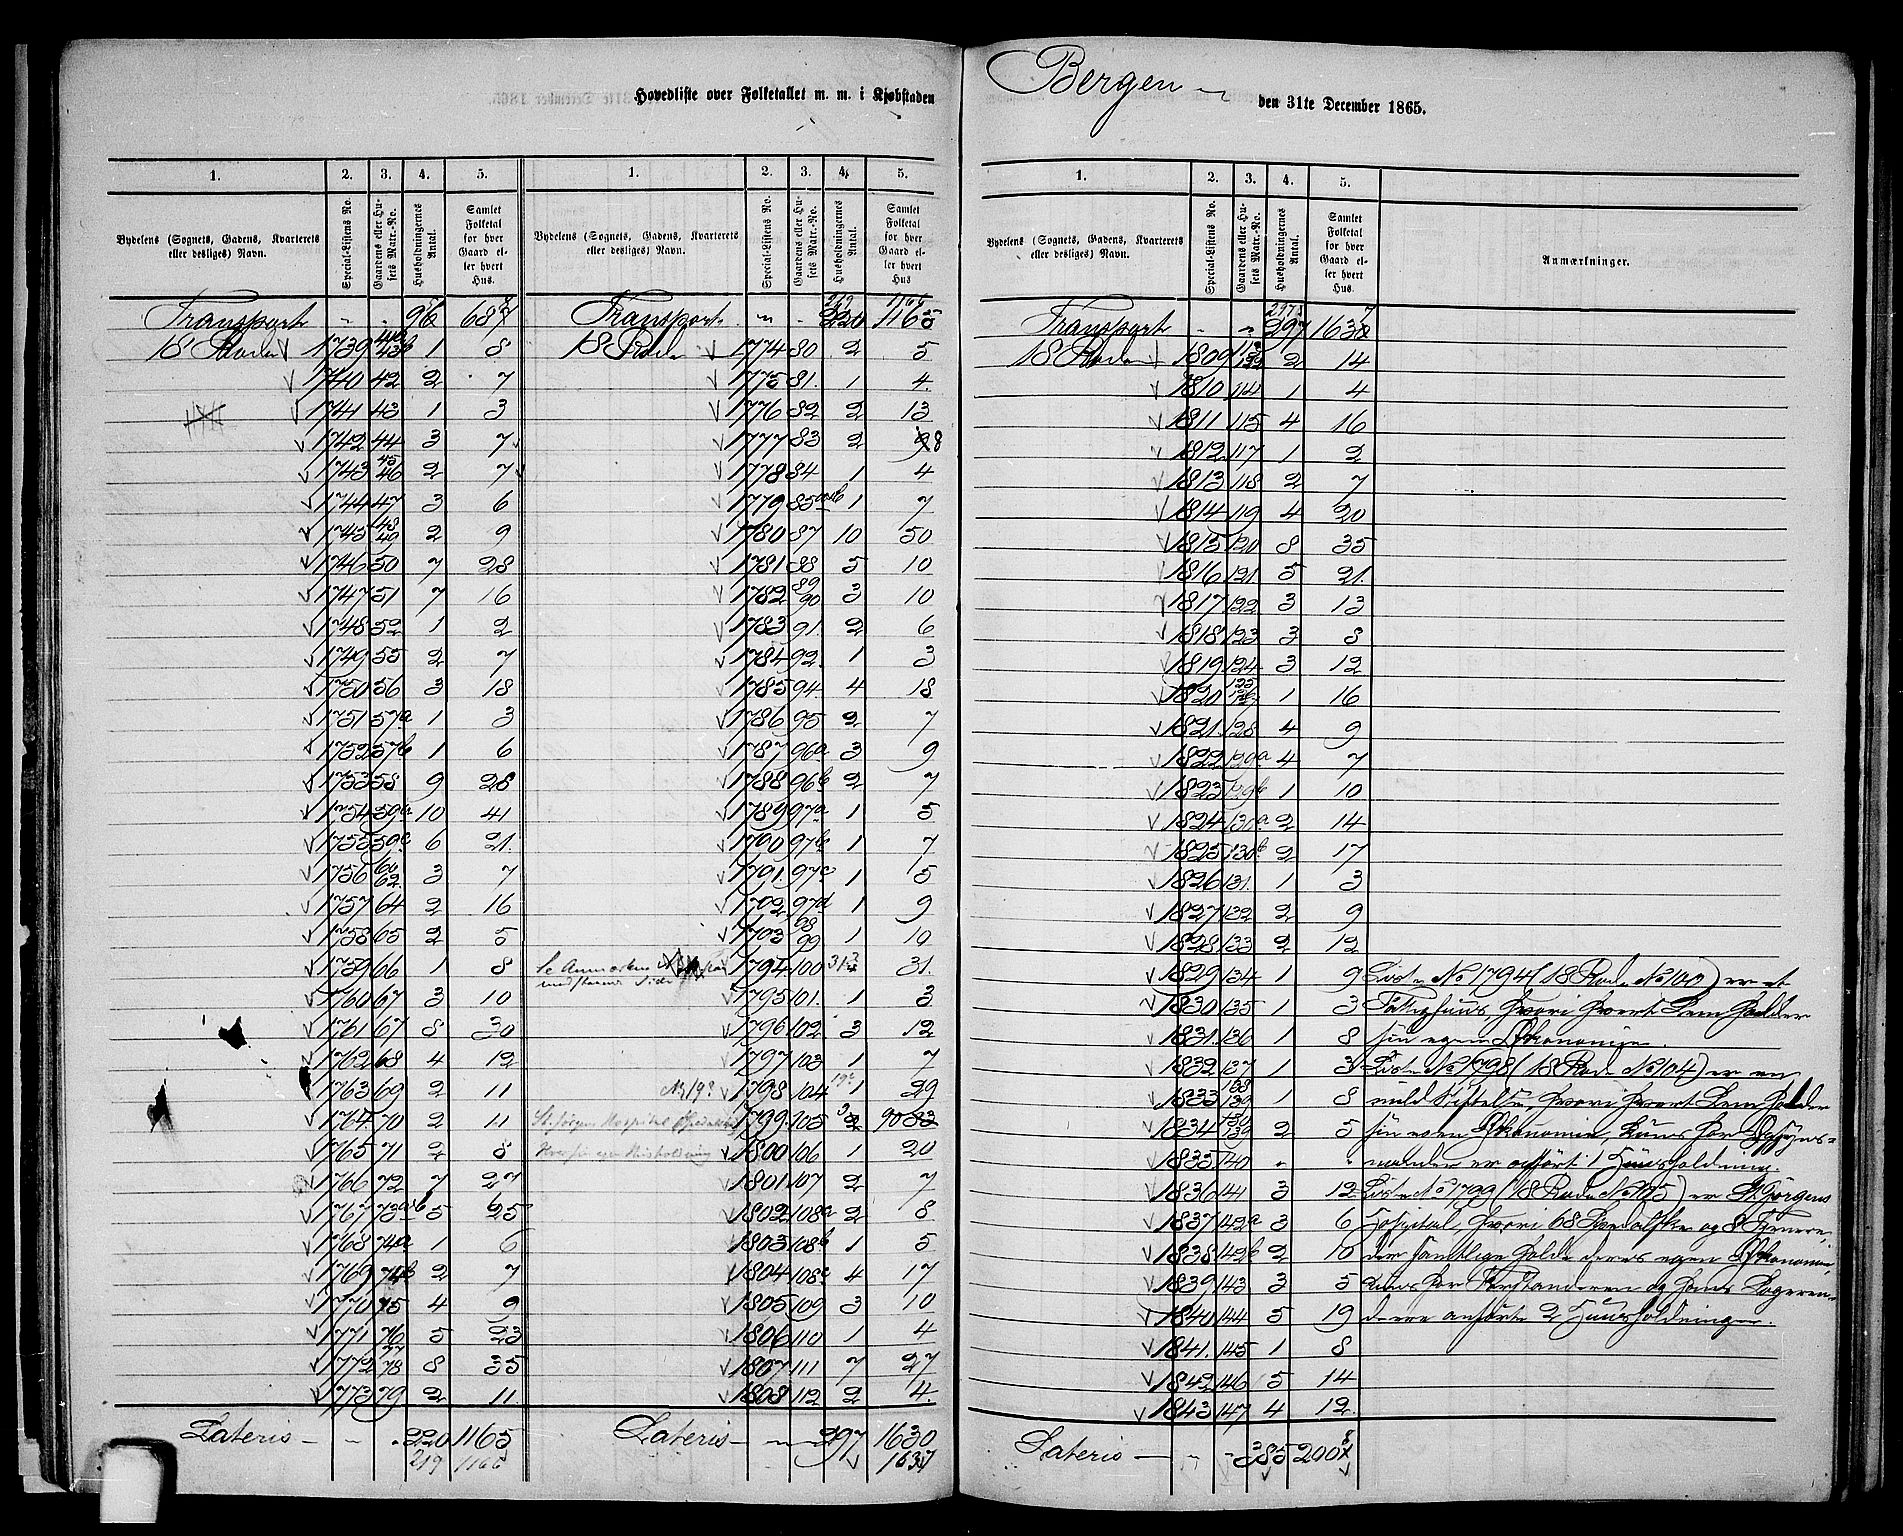 Hovedliste over Folketallet m. m. i Kjøbstaden
Bergen
den 31te December 1865.
1. 2. 3. 4. 5. 1. 2. 3. 4. 5.
Bydelens (Sognets, Gadens, Kvarterets eller desliges) Navn.
Special-Listens No.
Gaardens eller Husets Matr.-No.
Husholdningernes Antal.
Samlet Folketal for hver Gaard eller hvert Hus.
Bydelens (Sognets, Gadens, Kvarterets eller desliges) Navn.
Special-Listens No.
Gaardens eller Husets Matr.-No.
Husholdningernes Antal.
Samlet Folketal for hver Gaard eller hvert Hus.
Transport
18 Rode 1739 1 8
1740 42 2 7
1741 43 1 3
1742 44 3 7
1743 45 46 2 7
1744 47 3 6
1745 48 49 2 9
1746 50 7 28
1747 51 7 16
1748 52 1 2
1749 55 2 7
1750 56 3 18
1751 57a 1 3
1752 57b 1 6
1753 58 9 28
1754 59a 10 41
1755 59c 6 21
1756 60 62 3 7
1757 64 2 16
1758 65 2 5
1759 66 1 8
1760 67 3 10
1761 67 8 30
1762 68 4 12
1763 69 2 11
1764 70 2 11
1765 71 2 8
1766 72 7 27
1767 73ab 5 25
1768 74a 1 6
1769 74b 2 7
1770 75 4 9
1771 76 5 23
1772 77 78 8 35
1773 79 2 11
Lateris 220 1165
219 1166
Transport 220 1165
18 Rode 1774 80 2 5
1775 81 1 4
1776 82 2 13
1777 83 2 8
1778 84 1 4
1779 85 1 7
1780 87 10 50
1781 88 5 10
1782 89 90 3 10
1783 91 2 6
1784 92 1 3
1785 94 4 18
1786 95 2 7
1787 96a 3 9
1788 96b 2 7
1789 97a 1 5
1790 97b 1 7
1791 97c 1 5
1792 97d 1 9
1793 98 99 1 10
1794 100 31
1795 101 1 3
1796 102 3 12
1797 103 1 7
1798 104 1 29
St. Jørgens Hospital 1799 105
1800 106 1 20
1801 107 2 7
1802 108a 2 8
1803 108b 1 5
1804 108c 4 17
1805 109 3 10
1806 110 1 4
1807 111 7 27
1808 112 2 4
Lateris 297 1630
1637
1. 2. 3. 4. 5.
Bydelens (Sognets, Gadens, Kvarterets eller desliges) Navn.
Special-Listens No.
Gaardens eller Husets Matr.-No.
Husholdningernes Antal.
Samlet Folketal for hver Gaard eller hvert Hus.
Anmærkninger.
Transport 297
18 Rode 1809 2 14
1810 114 1 4
1811 115 4 16
1812 117 1 2
1813 118 2 7
1814 119 4 20
1815 120 8 35
1816 121 5 21
1817 122 3 13
1818 123 3 8
1819 124 3 12
1820 1 16
1821 128 4 9
1822 129a 4 7
1823 129b 1 10
1824 130a 2 14
1825 130b 2 17
1826 131 1 3
1827 132 2 9
1828 133 2 12
1829 134 1 9 Liste No 1794 (18 Rode No 100) er et
1830 135 1 3 Fattighuus, hvori hvert Lem holder
1831 136 1 8 sin egen Økonomie.
1832 137 1 3 Liste No 1798 (18 Rode No 104) er en
1833 138 139 1 8 mild Stiftelse, hvori hvert Lem holder
1834 2 5 sin egen Økonomie, kuns for Opsyns-
1835 140 manden er anført 1 Huusholdning.
1836 141 3 12 Liste No 1799 (18 Rode No 105) er St. Jørgens
1837 142a 3 6 Hospital, hvori 68 Spedalske og 8 Tjenere,
1838 142b 2 10 der samtlige holde deres egen Økonomie,
1839 143 3 5 kuns for Forstanderen og hans Logeren-
1840 144 5 19 dere anførte 2 Huusholdninger.
1841 145 1 8
1842 146 5 14
1843 147 4 12
Lateris 385